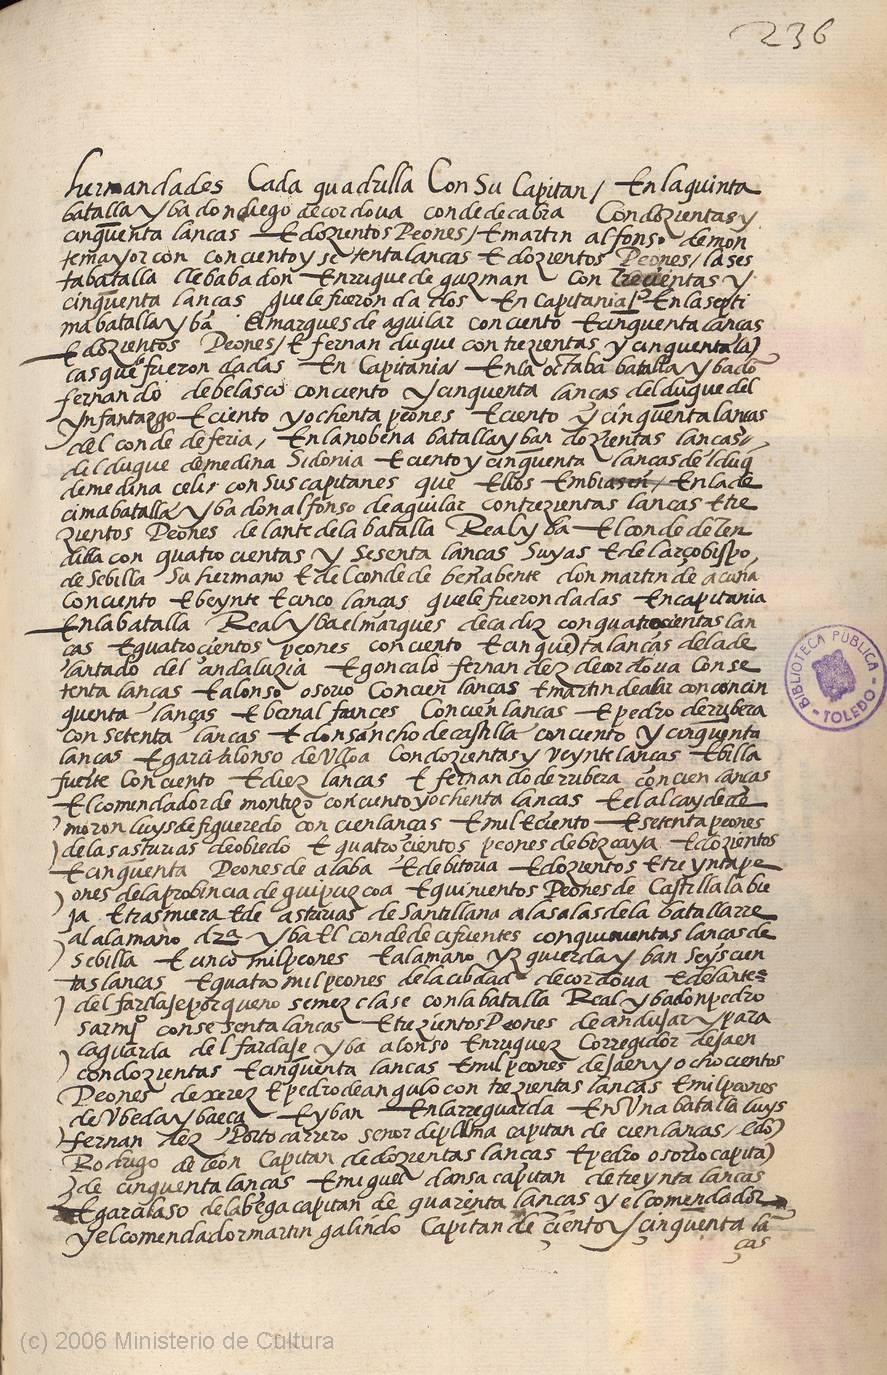 236
hermandades Cada quadrilla Con Su Capitan / En la quinta
batalla yba don diego de cordova conde de cabra Con dozientas y
cinquenta lancas E dozientos Peones / E martin alfonso de mon
temayor con ciento y setenta lancas E dozientos Peones / la ses
ta batalla llebaba don Enrrique de guzman Con trecientas y
cinquenta lancas que le fueron dados En Capitania / En la septi
ma batalla yba El marques de aguilar con ciento E cinquenta lancas
E dozientos Peones / E fernan duque con trezientas y cinquenta la
cas que fueron dadas En Capitania / En la octaba batalla yba dō
fernando de belasco con ciento y cinquenta lancas del duque del
ynfantazgo E ciento y ochenta peones E ciento y cinquenta lancas
del conde de feria / En la nobena batalla yban dozientas lancas
del duque de medina Sidonia E ciento y cinquenta lancas del duq̄
de medina celir con sus capitanes que Ellos Embiasen / En la de
cima batalla yba don alfonso de aguilar con trezientas lancas E tre
zientos Peones delante de la batalla Real yba El conde de ten
dilla con quatro cientas y Sesenta lancas Suyas E de l arçobispo
de Sebilla Su hermano E del conde de benabente don martin de acuña
Con ciento E beynte E cinco lancas que le fueron dadas En capitania
En la batalla Real yba el marques de cadiz con quatrocientas lan
cas E quatrocientos peones con ciento E cinquēta lancas del ade
lantado del andaluzia E goncalo fernandez de cordova Con se
tenta lancas E alonso osorio Con cien lancas E martin de alar con cin
quenta lancas E bernal frances Con cien lancas E pedro de rribera
con setenta lancas E don sancho de castilla con ciento y cinquenta
lancas E garci alonso de Vlloa Con dozientas y veynte lancas E billa
fuerte Con ciento E diez lancas E fernando de rribera con cien lancas
El comendador de montizo con ciento y ochenta lancas E el alcayde de
moron luys de figueredo con cien lancas E mil E ciento E setenta peones
de las asturias de obiedo E quatrocientos peones de bizcaya E dozientos
E cinquenta Peones de alaba E de bitoria E dozientos E treynta pe
ones de la probincia de guipuzcoa E quinientos Peones de Castilla la bie
ja E trasmiera E de asturias de Santillana a las alas de la batalla rre
al a la mano drª yba El conde de cifuentes con quinientas lancas de
Sebilla E cinco mil peones E a la mano yzquierda yban Seyscien
tas lancas E quatro mil peones de la cibdad de cordova E delante
del fardaje porque no se mezclase con la batalla Real yba don pedro
sarmiº con sesenta lancas E trezientos Peones de andujar y para
la guarda del fardaje yba alonso Enrriquez Corregidor de Jaen
con dozientas E cinquenta lancas E mil peones de Jaen y ochocientos
Peones de xerez E pedro de angulo con trezientas lancas E mil peones
de Vbeda y baeca E yban En la rreguarda En Vna batalla luys
fernandez Porto carrero señor de palma capitan de cien lancas / E dō
Rodrigo de león Capitan de dozientas lancas E pedro osorio capitā
de cinquenta lancas E miguel dansa capitan de treynta lancas
E garcilaso de la bega capitan de quarenta lancas y el comendador
y el comendador martin galindo Capitan de ciento y cinquenta lā
cas
BIBLIOTECA PÚBLICA - TOLEDO -
(c) 2006 Ministerio de Cultura